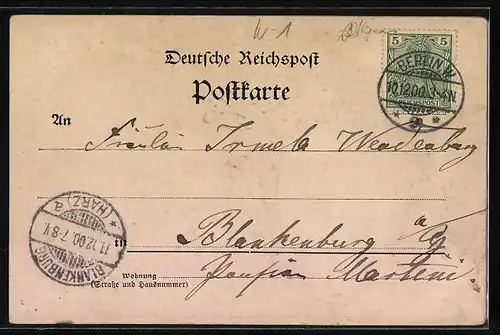 W-1
5 5
BERLIN W.
10.12.00. 3-4N.
REICHSPOST
Deutsche Reichspost
Postkarte
An
Fräulein Irmela
BLANKENBURG (HARZ) a
11.12.00. 7-8 V.
in Blankenburg a/H
Wohnung
(Straße und Hausnummer)
Pension Martini.